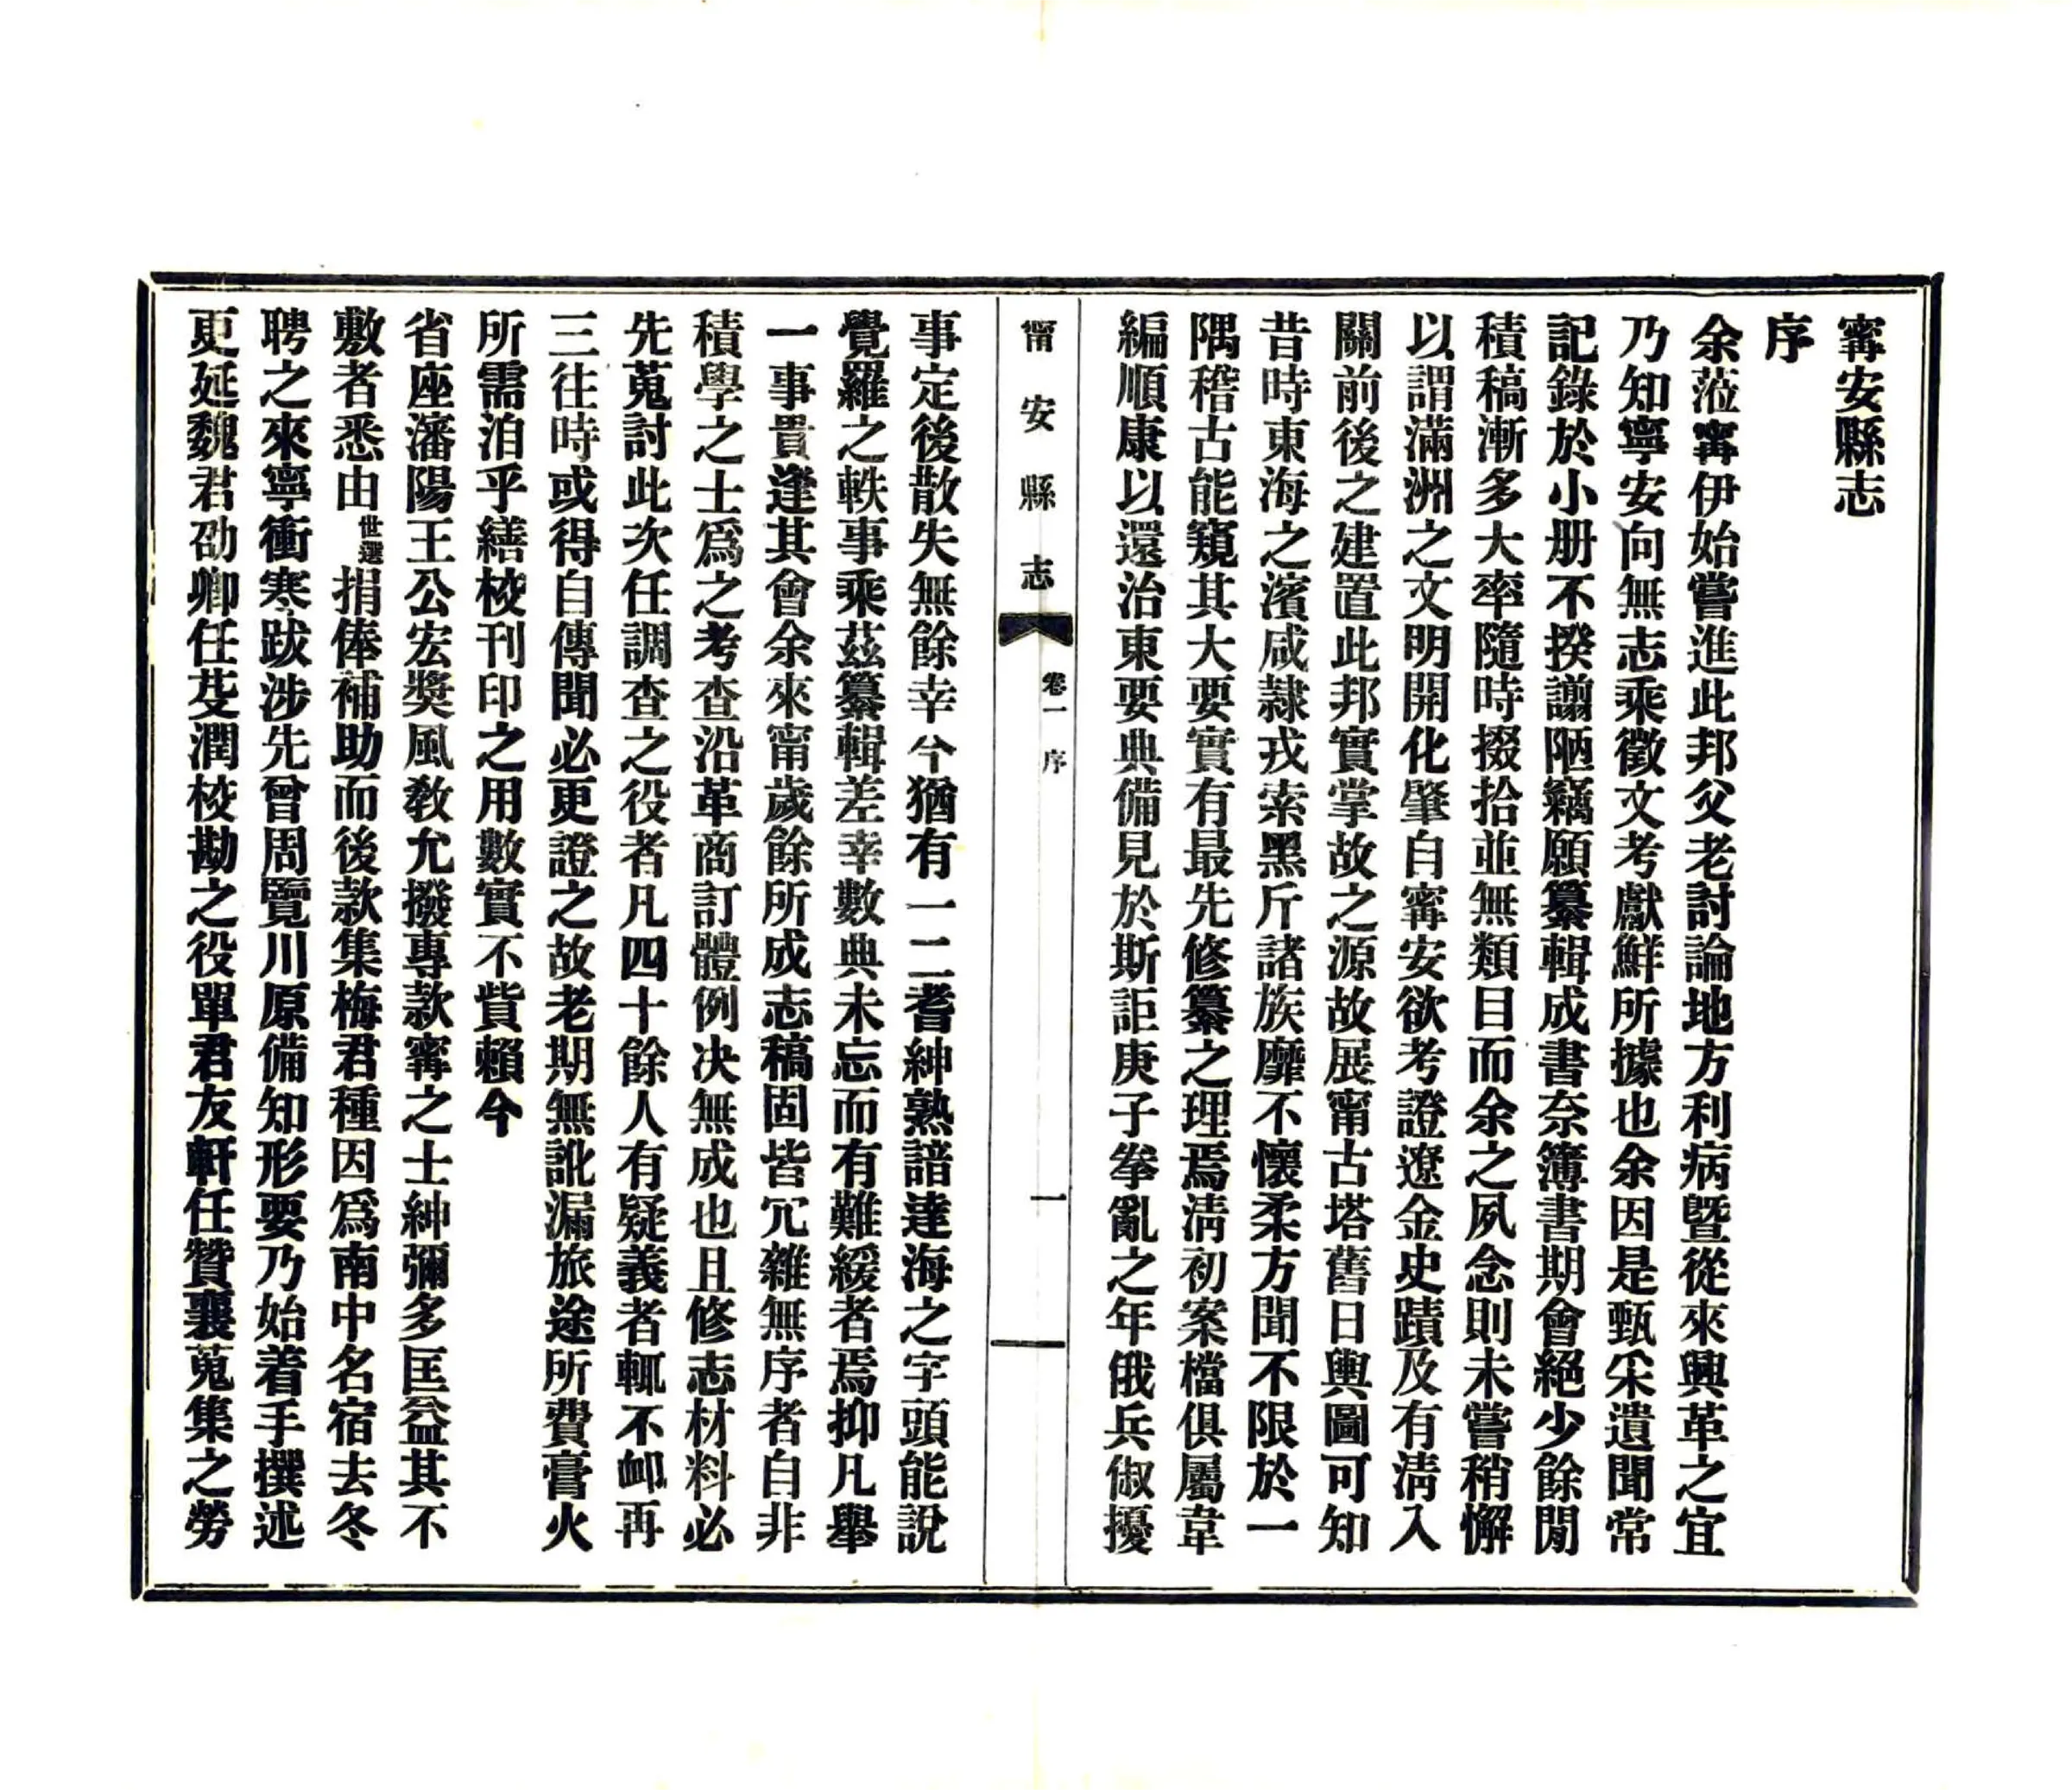 寗安縣志
序
余蒞寗伊始嘗進此邦父老討論地方利病曁從來興革之宜
乃知寧安向無志乘徵文考獻鮮所據也余因是甄采遺聞常
記錄於小册不揆謭陋竊願纂輯成書奈簿書期會絕少餘閒
積稿漸多大率隨時掇拾並無類目而余之夙念則未嘗稍懈
以謂滿洲之文明開化肇自寗安欲考證遼金史蹟及有淸入
關前後之建置此邦實掌故之源故展甯古塔舊日輿圖可知
昔時東海之濱咸隸戎索黑斤諸族靡不懷柔方聞不限於一
隅稽古能窺其大要實有最先修纂之理焉淸初案檔俱屬韋
編順康以還治東要典備見於斯詎庚子拳亂之年俄兵俶擾
甯安縣志
卷一 序
一
事定後散失無餘幸今猶有一二耆紳熟諳達海之字頭能說
覺羅之軼事乘茲纂輯差幸數典未忘而有難緩者焉抑凡舉
一事貴逢其會余來甯歲餘所成志稿固皆冗雜無序者自非
積學之士爲之考查沿革商訂體例决無成也且修志材料必
先蒐討此次任調查之役者凡四十餘人有疑義者輒不卹再
三往時或得自傳聞必更證之故老期無訛漏旅途所費膏火
所需洎乎繕校刊印之用數實不貲賴今
省座瀋陽王公宏獎風敎允撥專款寗之士紳彌多匡益其不
敷者悉由世選捐俸補助而後款集梅君種因爲南中名宿去冬
聘之來寧衝寒跋涉先曾周覽川原備知形要乃始着手撰述
更延魏君劭卿任芟潤校勘之役單君友軒任贊襄蒐集之勞